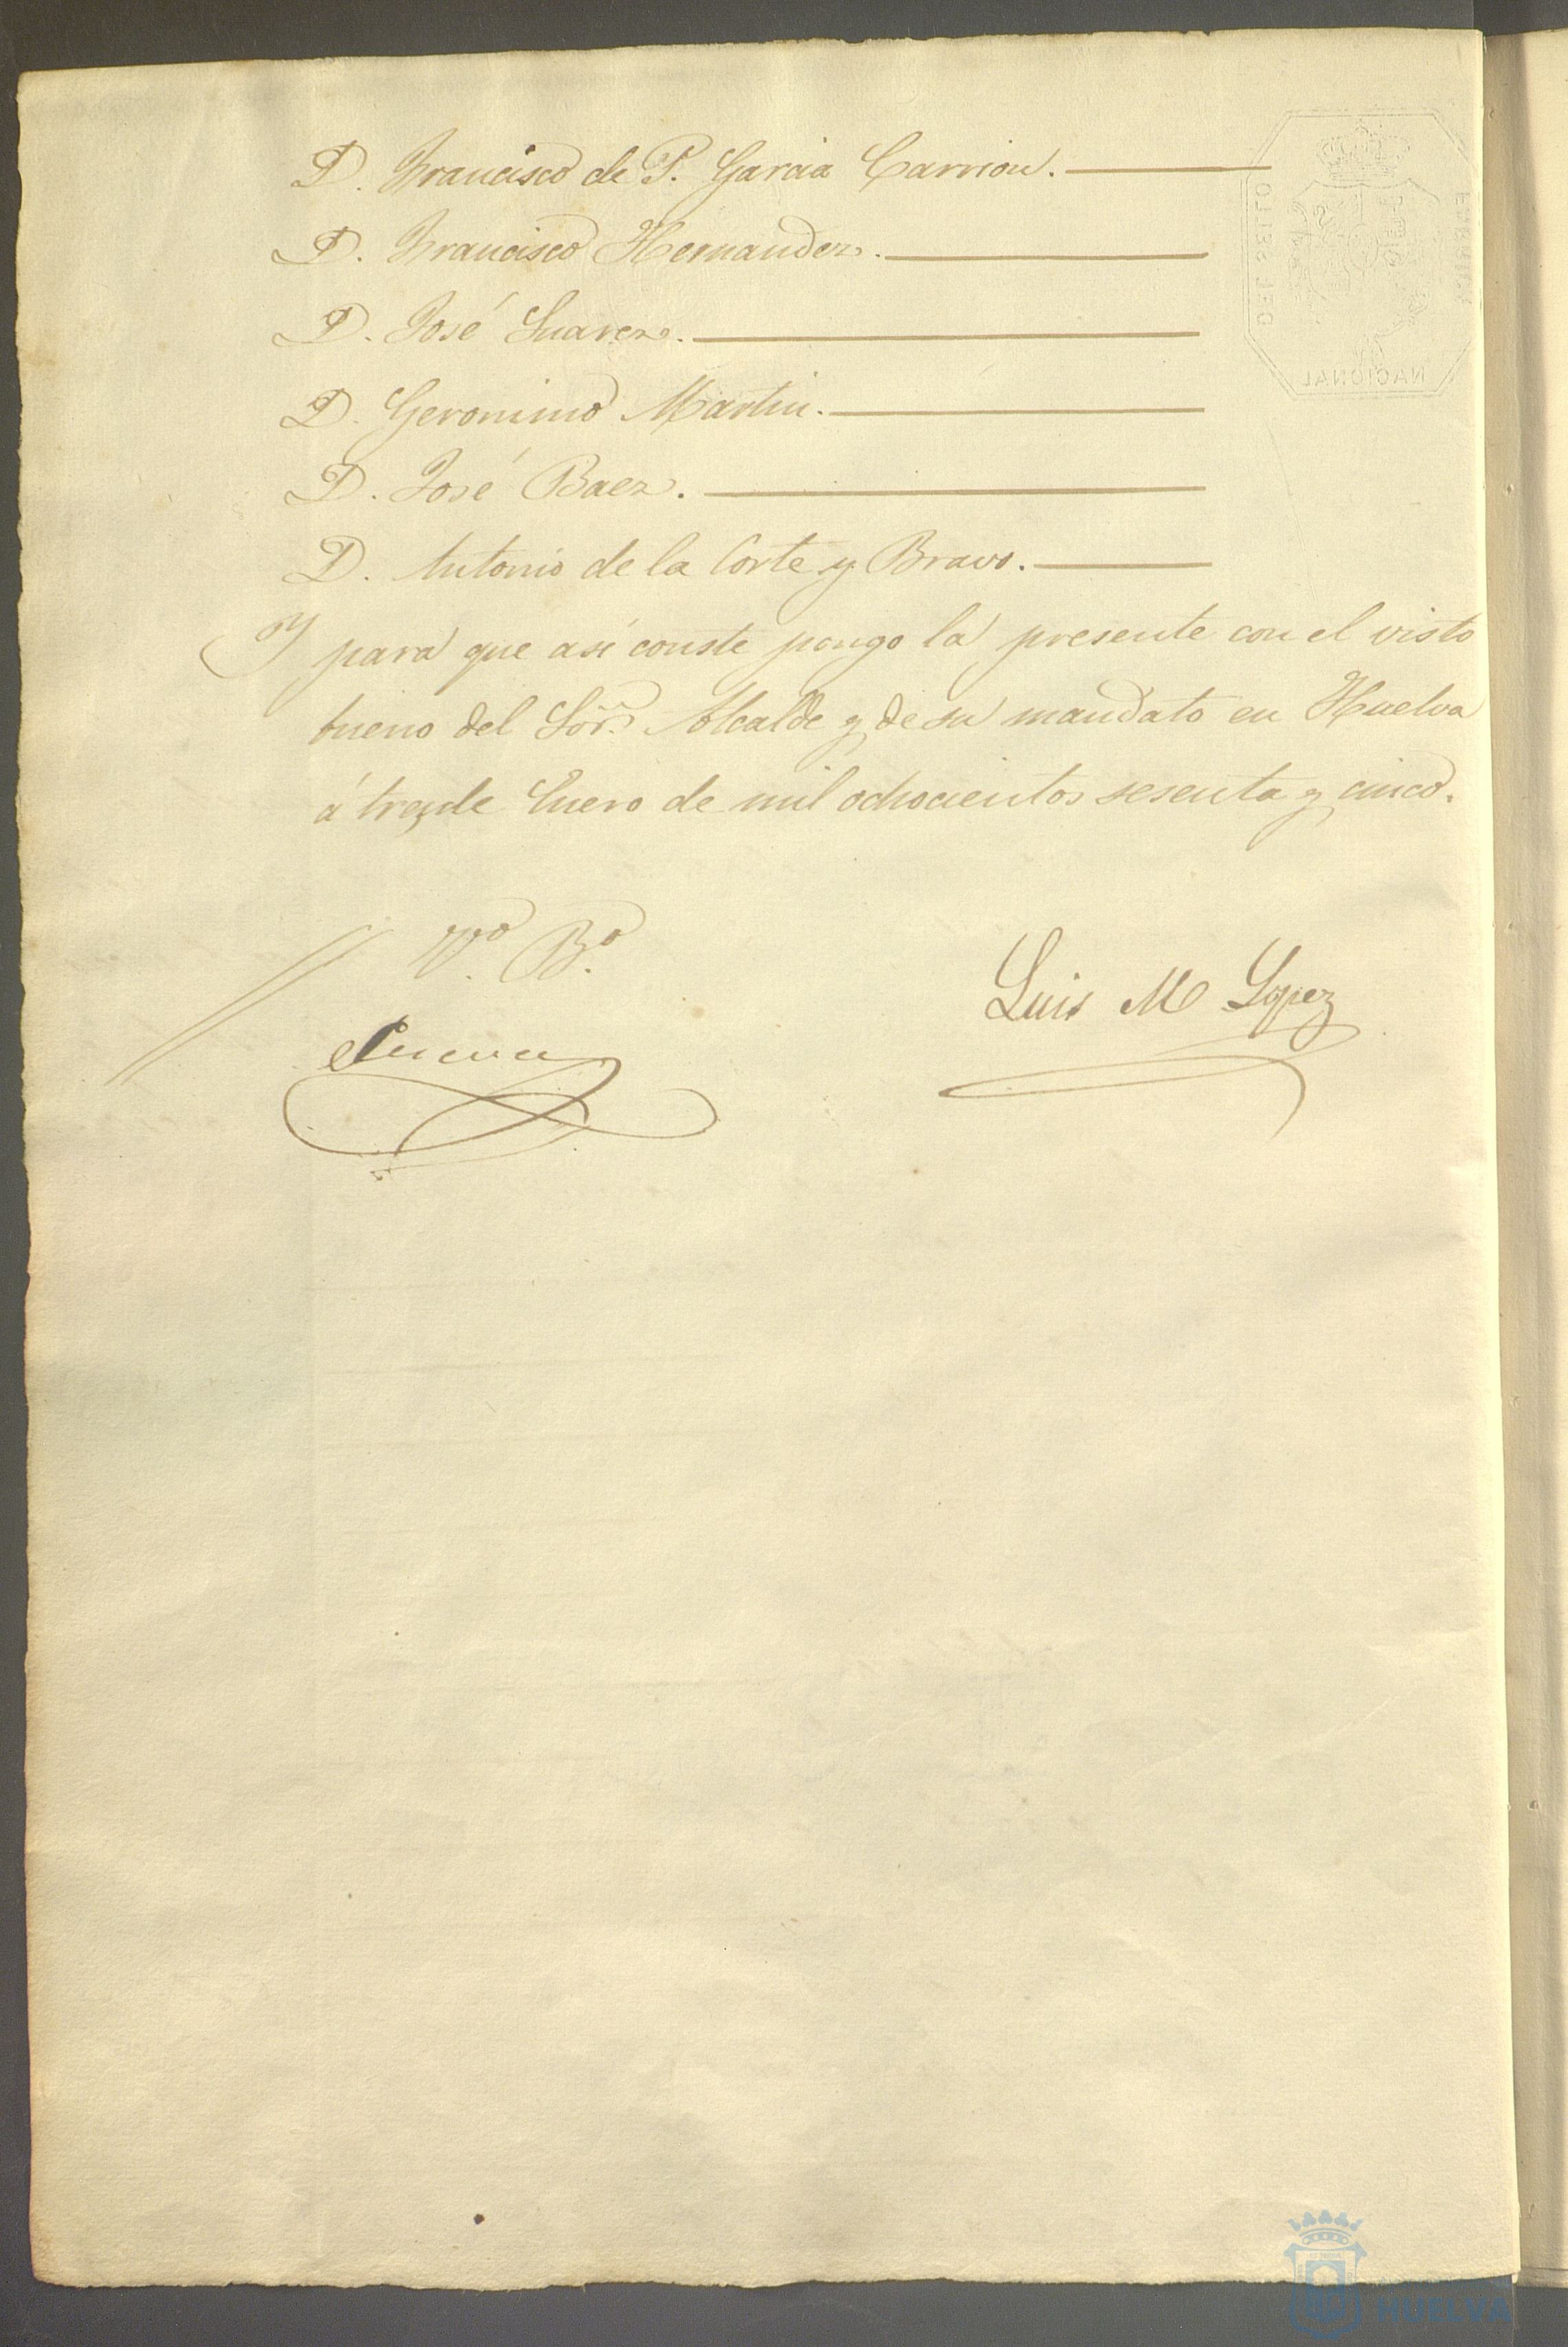 D. Francisco de P. Garcia Carrion.
D. Francisco Hernandez.
D. José Suarez.
D. Geronimo Martin.
D. José Baez.
D. Antonio de la Corte y Bravo.
Y para que asi conste pongo la presente con el visto
bueno del Sor. Alcalde y de su mandato en Huelva
á trece de Enero de mil ochocientos sesenta y cinco.
Vº. Bº.
Luis M Lopez
NACIONAL
DEL SELLO
HUELVA